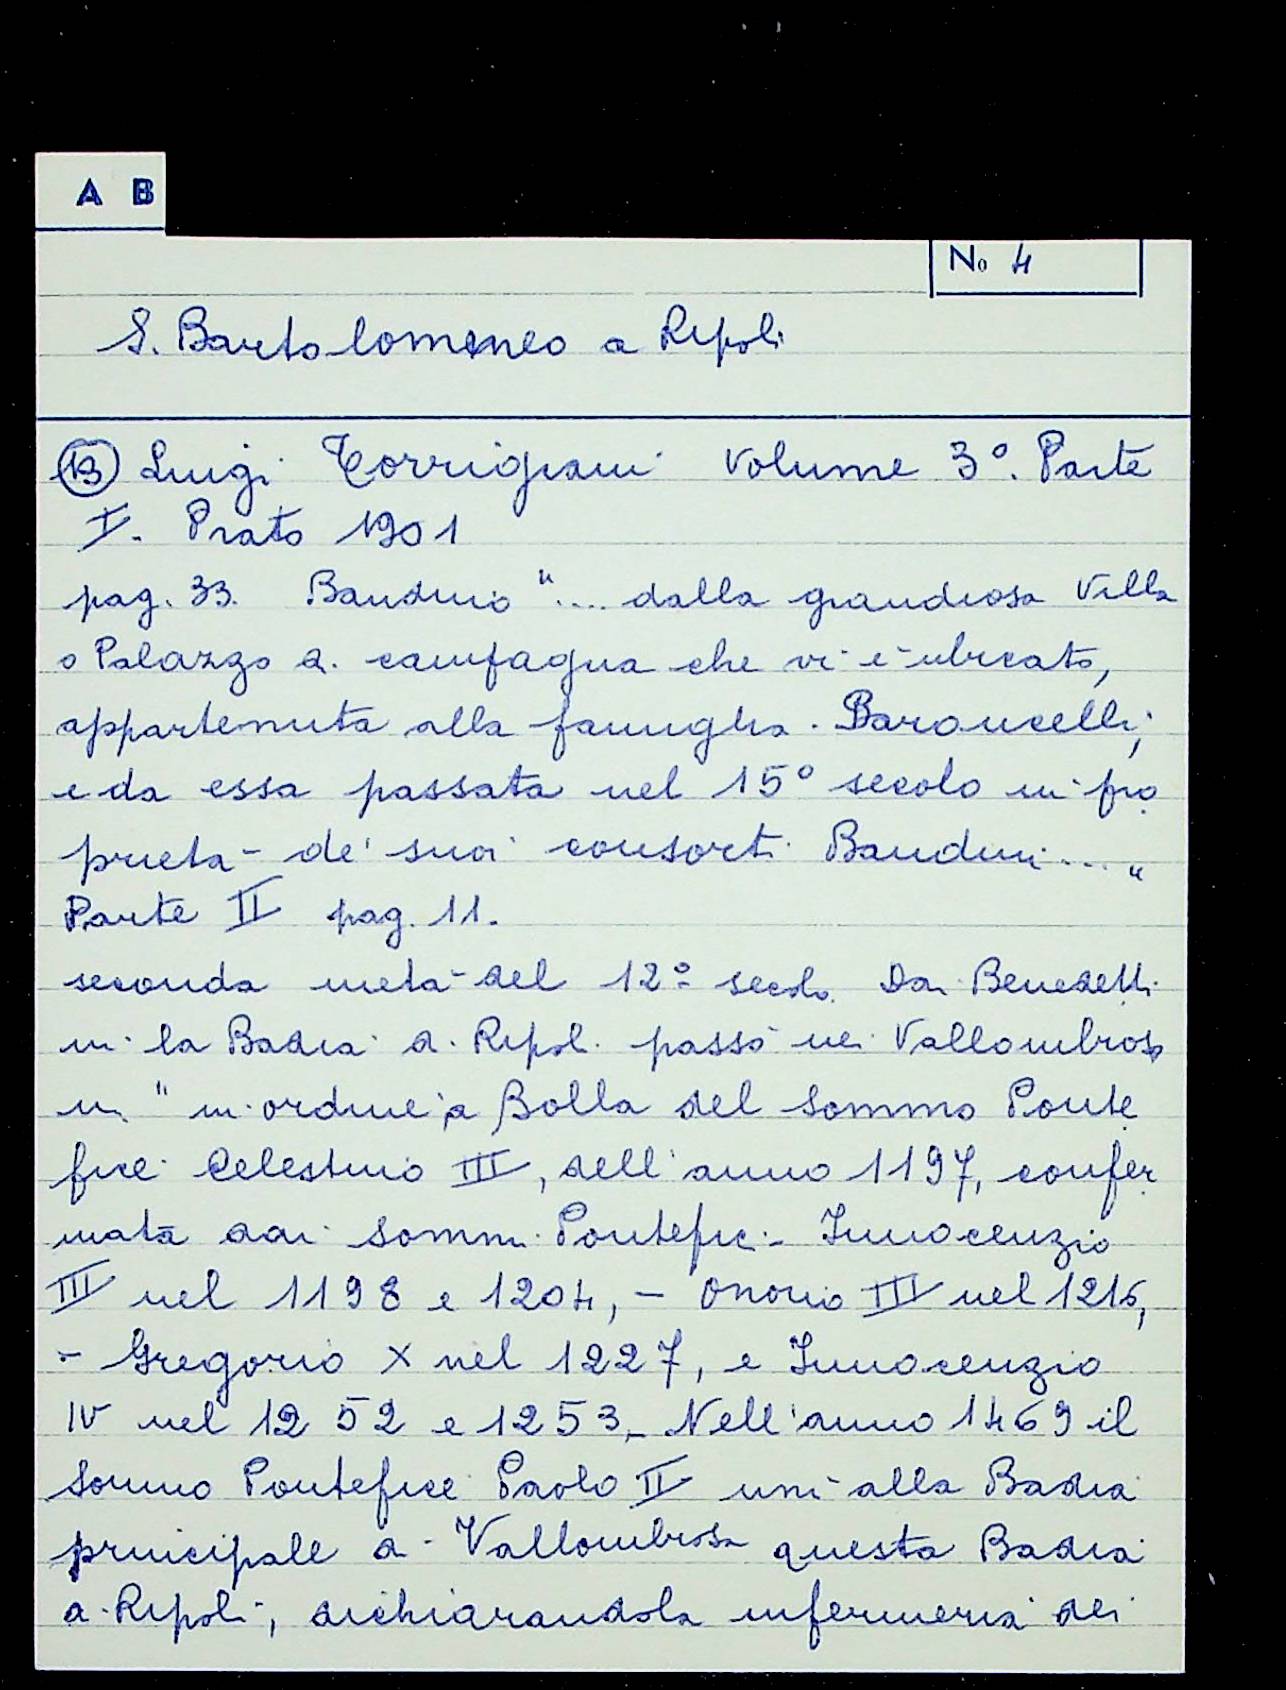 A B
No 4
S. Bartolomeneo a Ripoli
13 Luigi Torrigiani Volume 3°. Parte
I. Prato 1901
pag. 33. Bandino ".... dalla grandiosa Villa
o Palazzo di campagna che vi è ubicato,
appartenuta alla famiglia Baroncelli,
e da essa passata nel 15° secolo in pro
prietà de' suoi consorti Bandini...."
Parte II pag. 11.
seconda metà del 12° secolo. Dai Benedetti
ni la Badia di Ripoli passò nei Vallombrosa
ni " in ordine a Bolla del Sommo Ponte
fice Celestino III, dell'anno 1197, confer
mata dai Sommi Pontefici - Innocenzio
III nel 1198 e 1204, - Onorio III nel 1216,
- Gregorio X nel 1227, e Innocenzio
IV nel 1252 e 1253. Nell'anno 1469 il
Sommo Pontefice Paolo II unì alla Badia
principale di Vallombrosa questa Badia
a Ripoli, dichiarandola infermeria dei